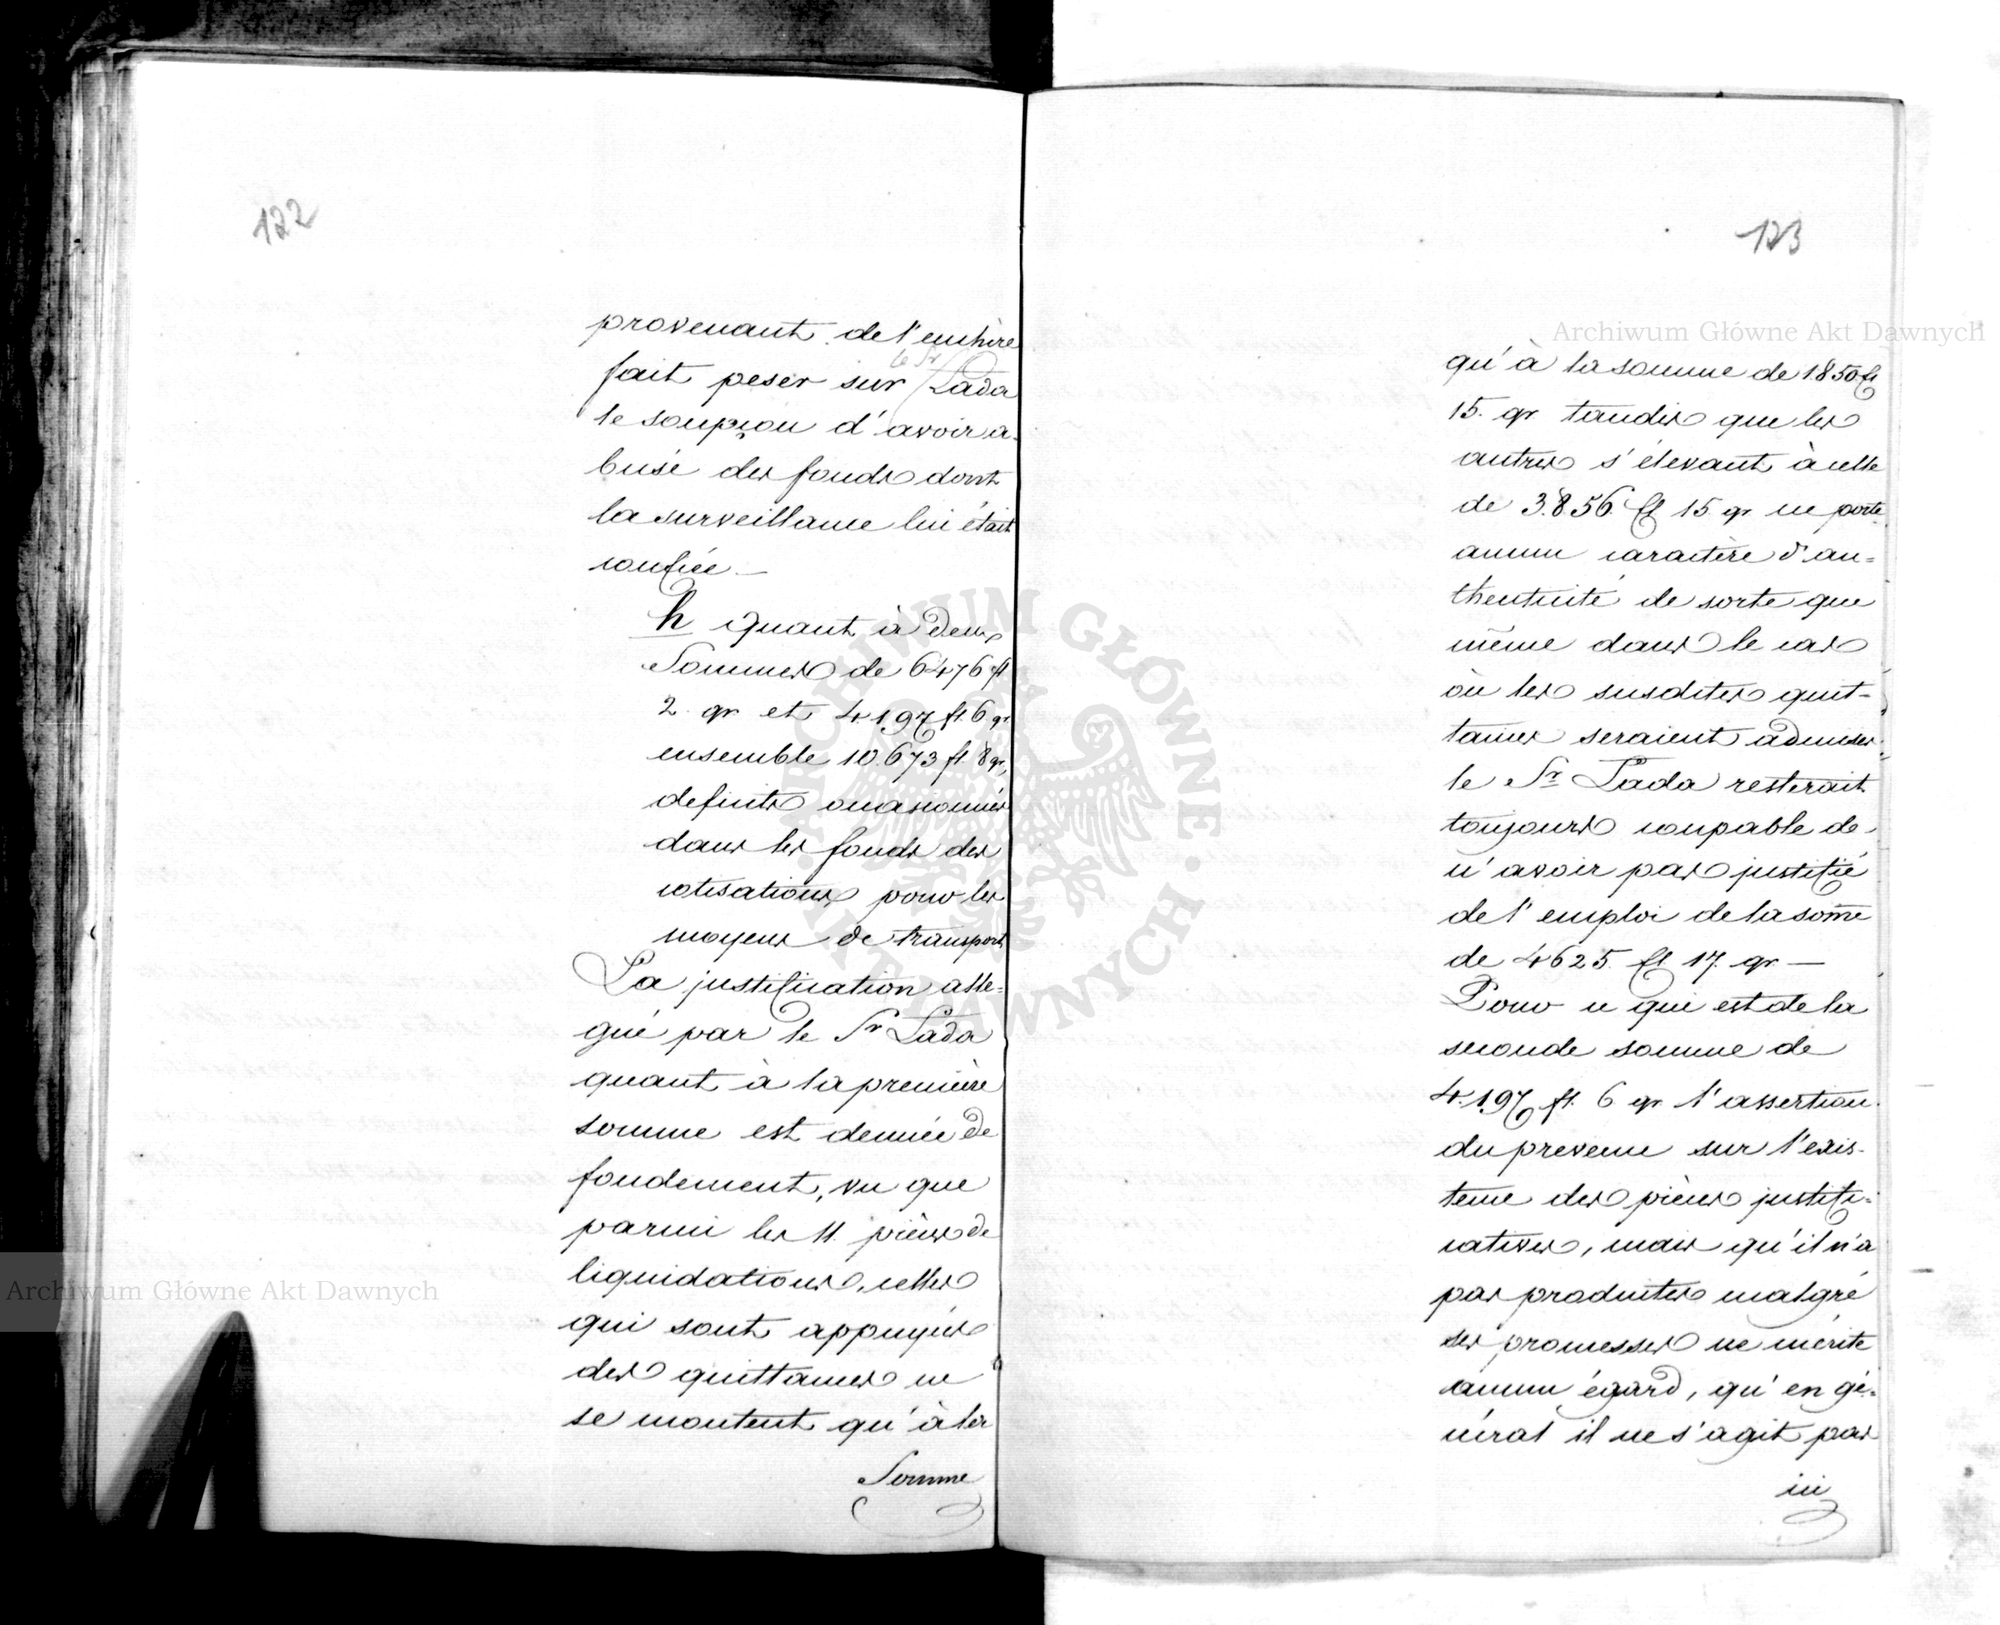 122
provenant de l'entière
le Sr
fait peser sur Lada
le soupçon d'avoir a-
busé des fonds dont
la surveillance lui était
confiée. —
h quant à deux
Sommes de 6476 fl
2 gr et 4.197 fl. 6 gr
ensemble 10.673 fl. 8 gr,
deficits occasionnés
dans les fonds des
cotisations pour les
moyens de transport
La justification alle=
gué par le Sr Lada
quant à la première
somme est denuée de
fondement, vu que
parmi les 11. pièces de
liquidations, celles
qui sont appuyées
des quittances ne
se montent qu'à la
Somme
123
qu'à la somme de 1.850 fl
15. gr tandis que les
autres s'élevant à celle
de 3.856. fl 15 gr ne porte
aucun caractère d'au=
thenticité de sorte que
même dans le cas
où les susdites quit-
tances seraient admises
le Sr Lada resterait
toujours coupable de
n'avoir pas justifié
de l'emploi de la som̄e
de 4625. fl 17. gr —
Pour ce qui est de la
seconde somme de
4.197 fl. 6 gr l'assertion
du prevenu sur l'exis-
tence des pièces justifi=
catives, mais qu'il n'a
pas produites malgré
ses promesses ne mérite
aucun égard, qu'en gé=
néral il ne s'agit pas
ici
Archiwum Główne Akt Dawnych
Archiwum Główne Akt Dawnych
ARCHIWUM GŁÓWNE · AKT DAWNYCH ·